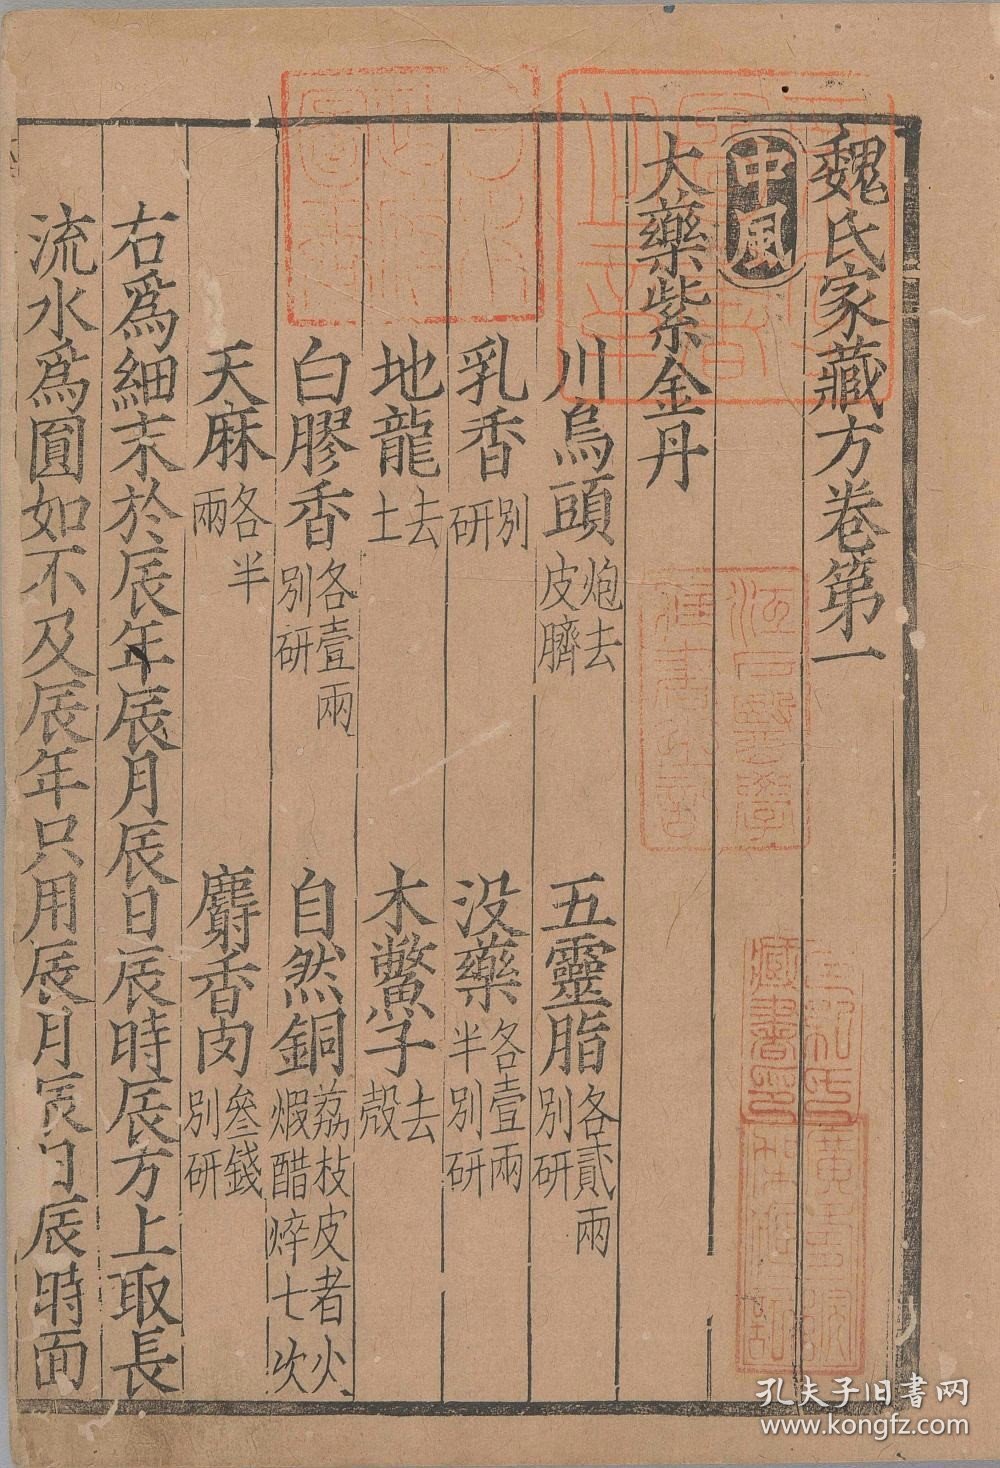 魏氏家藏方卷第一
中風
大藥紫金丹
川烏頭 炮去皮臍 五靈脂 各貳兩別研
乳香 別研 没藥 各壹兩半別研
地龍 去土 木鱉子 去殼
白膠香 各壹兩別研 自然銅 荔枝皮者火煆醋焠七次
天麻 各半兩 麝香肉 叁錢別研
右爲細末於辰年辰月辰日辰時辰方上取長
流水爲圓如不及辰年只用辰月辰日辰時面
藏書
孔夫子旧書网
www.kongfz.com